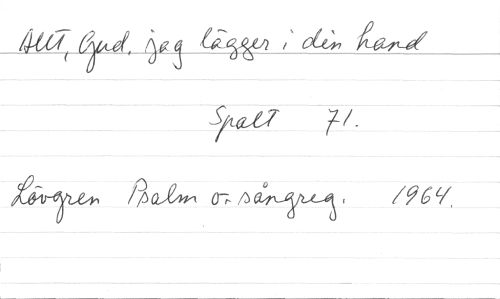 Allt, Gud, jag lägger i din hand
Spalt 71.
Lövgren Psalm o. sångreg. 1964.